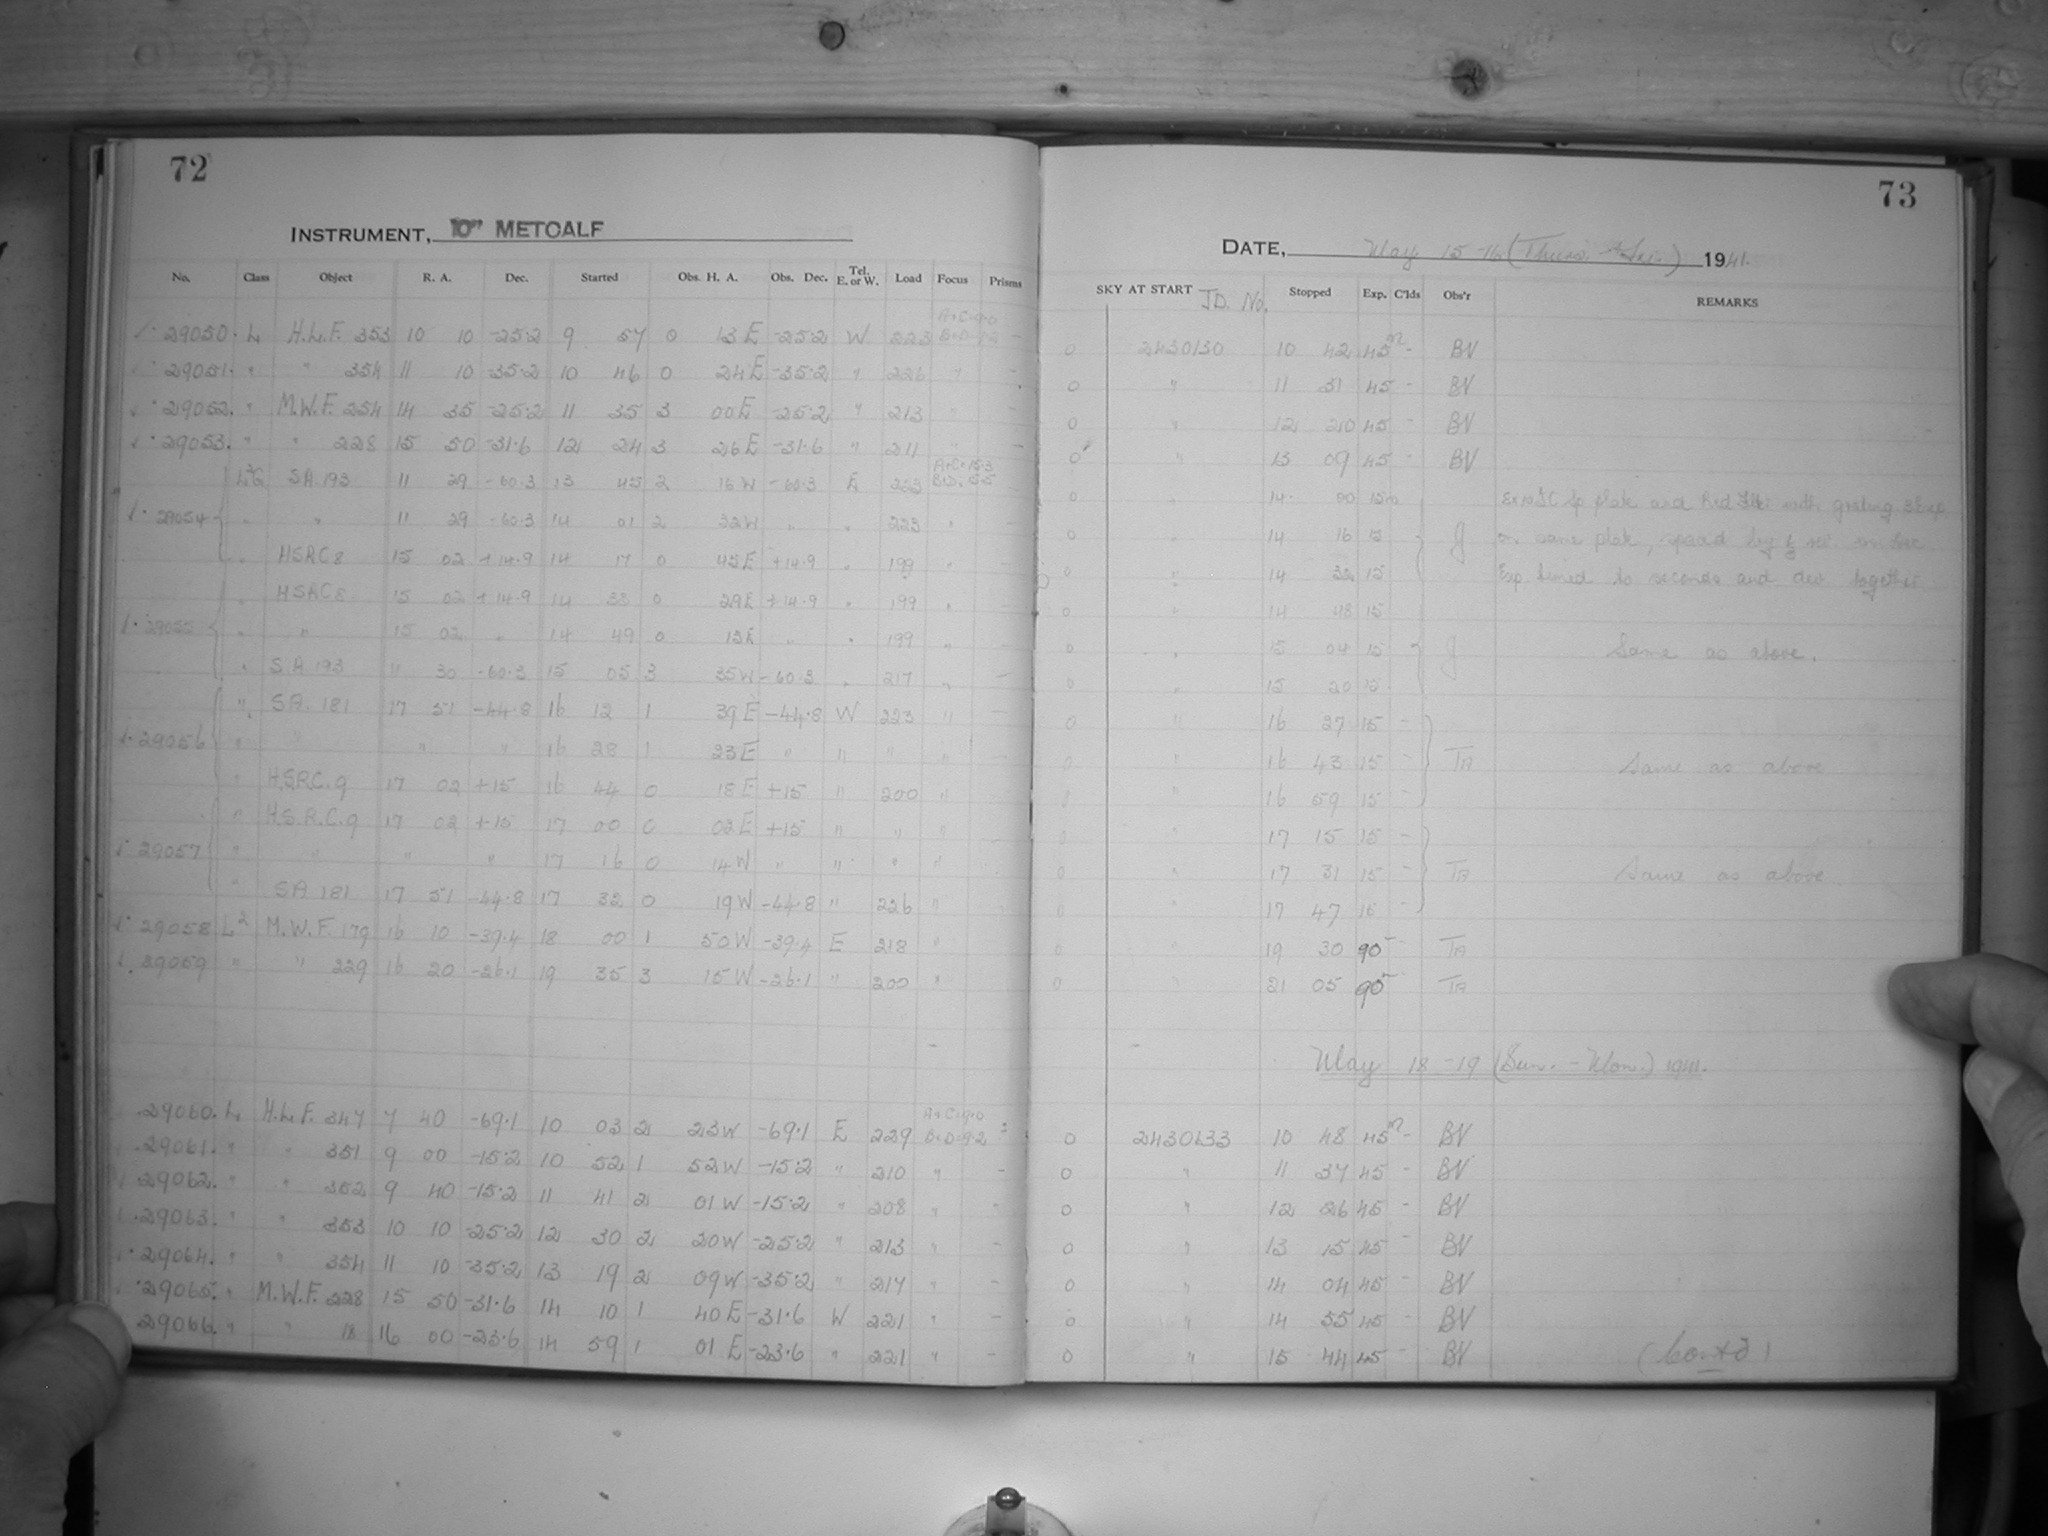 72
INSTRUMENT, 10" METCALF
No. Class Object R. A. Dec. Started Obs. H. A. Obs. Dec. Tel. E. or W. Load Focus Prisms
A+C=9.0
29050. L H.L.F. 353 10 10 -25.2 9 57 0 13 E -25.2 W 223 B+D=9.2 -
29051. " " 354 11 10 -35.2 10 46 0 24 E -35.2 " 226 " -
29052. " M.W.F. 254 14 35 -25.2 11 35 3 00 E -25.2 " 213 " -
29053. " " 228 15 50 -31.6 12 24 3 26 E -31.6 " 211 " -
A+C=15.3
SA 193 11 29 -60.3 13 45 2 16 W -60.3 E 223
29054 " " 11 29 -60.3 14 01 2 32 W " " 223 " -
" HSRC 8 15 02 +14.9 14 17 0 45 E +14.9 " 199 " -
" HSRC 8 15 02 +14.9 14 33 0 29 E +14.9 " 199 " -
29055 " " 15 02 " 14 49 0 13 E " " 199 "
" S.A 193 11 30 -60.3 15 05 3 35 W -60.3 " 217 " -
" SA. 181 17 51 -44.8 16 12 1 39 E -44.8 W 223 " -
29056 " " " " 16 28 1 23 E " " " " -
" H.S.R.C. 9 17 02 +15 16 44 0 18 E +15 " 200 "
" H.S.R.C. 9 17 02 +15 17 00 0 02 E +15 " " "
29057 " " " " 17 16 0 14 W " " " "
" SA 181 17 51 -44.8 17 32 0 19 W -44.8 " 226 "
29058 L2 M.W.F. 179 16 10 -39.4 18 00 1 50 W -39.4 E 218 "
29059 " " 229 16 20 -26.1 19 35 3 15 W -26.1 " 200 "
A+C=9.0
29060. L H.L.F. 347 7 40 -69.1 10 03 2 23 W -69.1 E 229 B+D=9.2
29061. " " 351 9 00 -15.2 10 52 1 52 W -15.2 " 210 " -
29062. " " 352 9 40 -15.2 11 41 2 01 W -15.2 " 208 " -
29063. " " 353 10 10 -25.2 12 30 2 20 W -25.2 " 213 " -
29064. " " 354 11 10 -35.2 13 19 2 09 W -35.2 " 217 " -
29065. " M.W.F. 228 15 50 -31.6 14 10 1 40 E -31.6 W 221 " -
29066. " " 18 16 00 -23.6 14 59 1 01 E -23.6 " 221 " -
73
DATE, May 15-16 (Thurs. - Fri.) 1941.
SKY AT START J.D. No. Stopped Exp. C'lds Obs'r REMARKS
0 2430130 10 42 45m - BV
0 " 11 31 45 - BV
0 " 12 20 45 - BV
0 " 13 09 45 - BV
0 " 14 00 15m plate and Red with grating
0 " 14 16 15 J on same plate,
0 " 14 32 15 Exp. timed to seconds and dev. together
0 " 14 48 15
0 " 15 04 15 J Same as above.
0 " 15 20 15
0 " 16 27 15 -
0 " 16 43 15 - TA Same as above
" 16 59 15 -
0 " 17 15 15 -
0 " 17 31 15 - TA Same as above
0 " 17 47 15 -
0 " 19 30 90 - TA
0 " 21 05 90 - TA
May 18-19 (Sun. - Mon.) 1941.
0 2430133 10 48 45m - BV
0 " 11 37 45 - BV
0 " 12 26 45 - BV
0 " 13 15 45 - BV
0 " 14 04 45 - BV
0 " 14 55 45 - BV
0 " 15 44 45 - BV
(Contd)